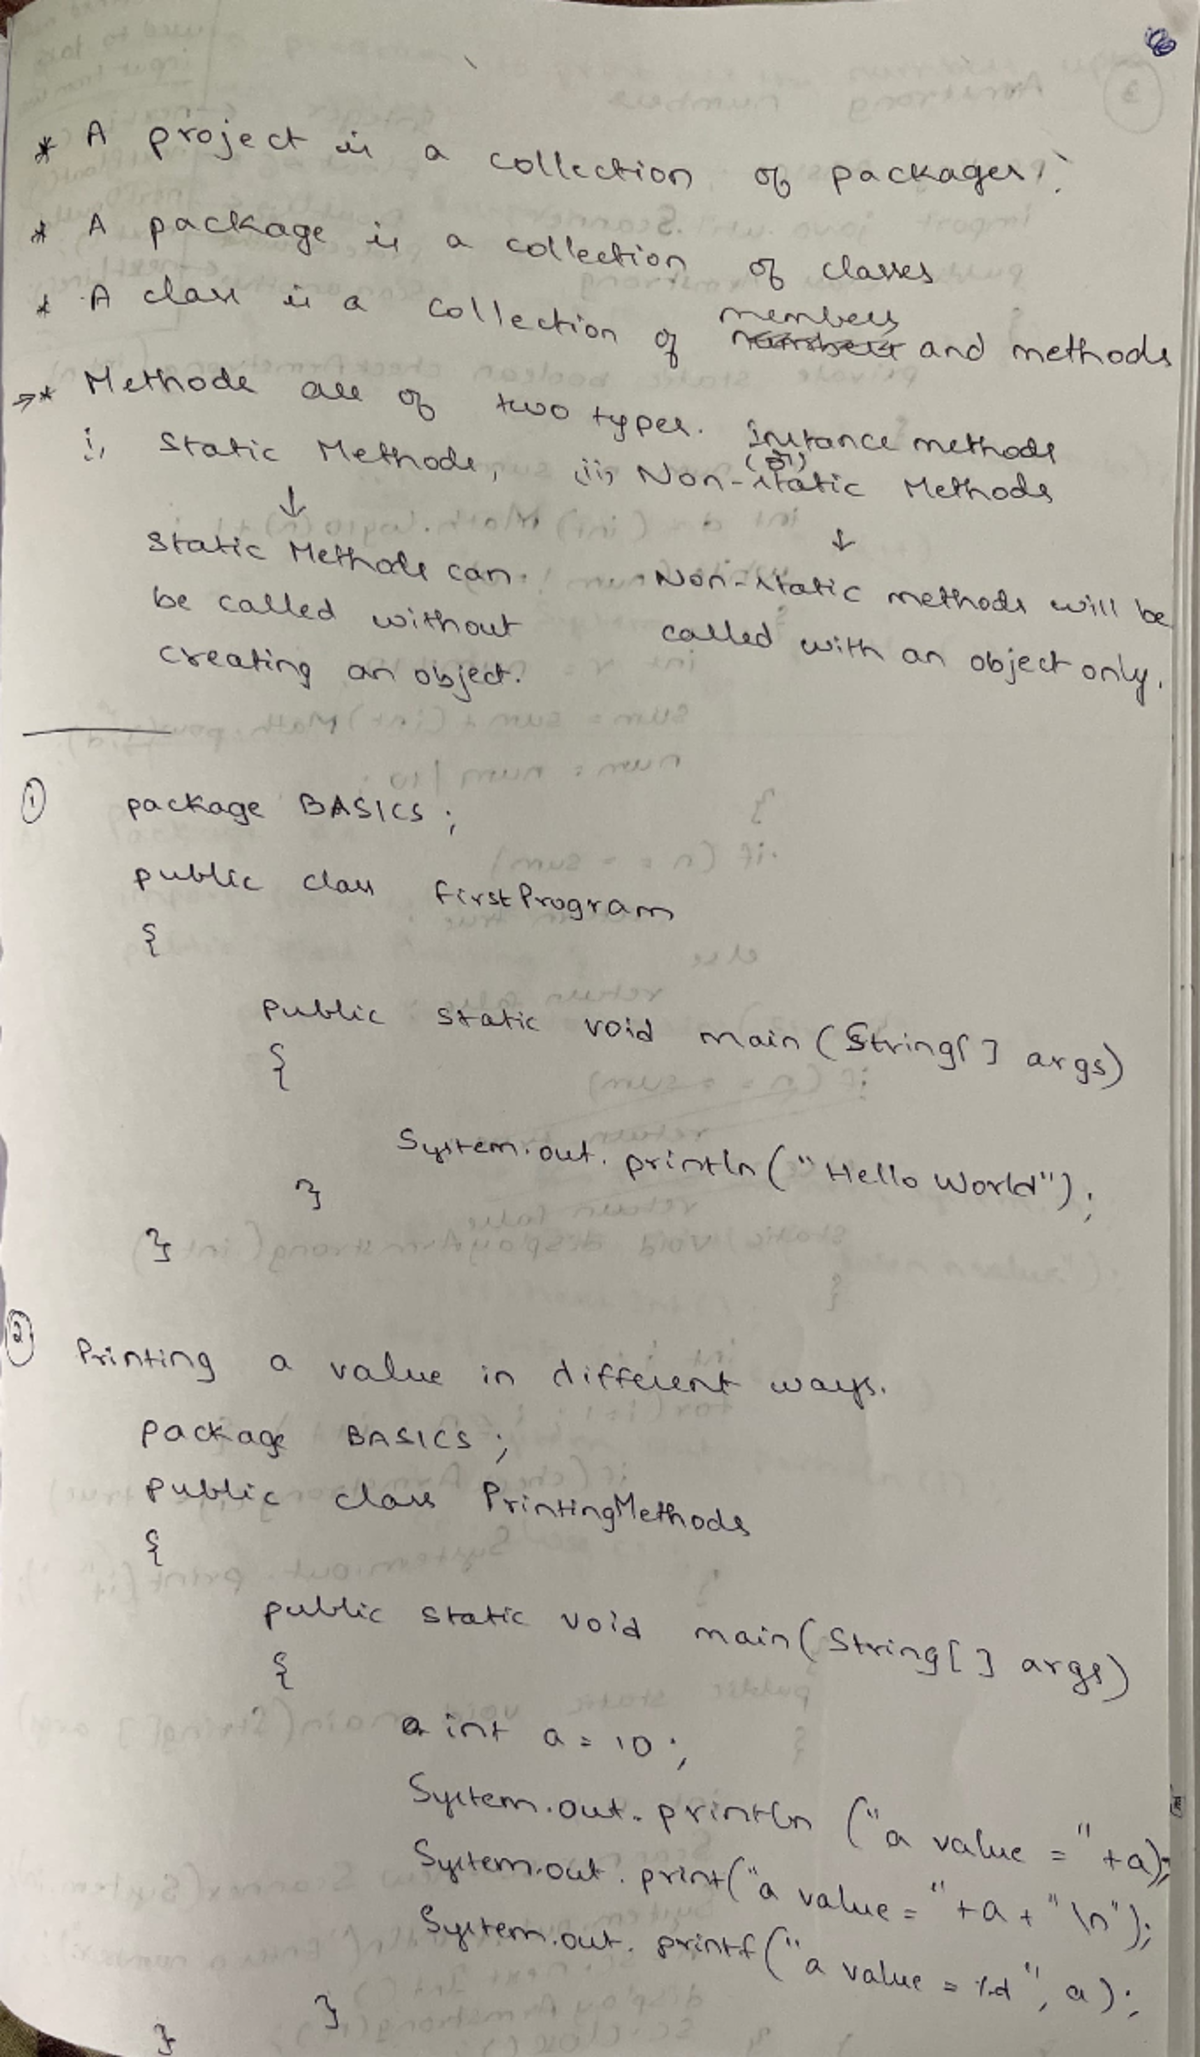 * A project is a collection of packages.
* A package is a collection of classes
* A class is a collection of members and methods
→* Methods are of two types.
i, Static Methods, ii, Instance methods (or) Non-static Methods
↓ ↓
Static Methods can be called without creating an object.
Non-static methods will be called with an object only.
① package BASICS;
public class firstProgram
{
public static void main(String[] args)
{
System.out.println("Hello World");
}
}
② Printing a value in different ways.
package BASICS;
public class PrintingMethods
{
public static void main(String[] args)
{
int a = 10;
System.out.println ("a value = "+a);
System.out.print("a value = "+a+"\n");
System.out.printf("a value = %d", a);
}
}